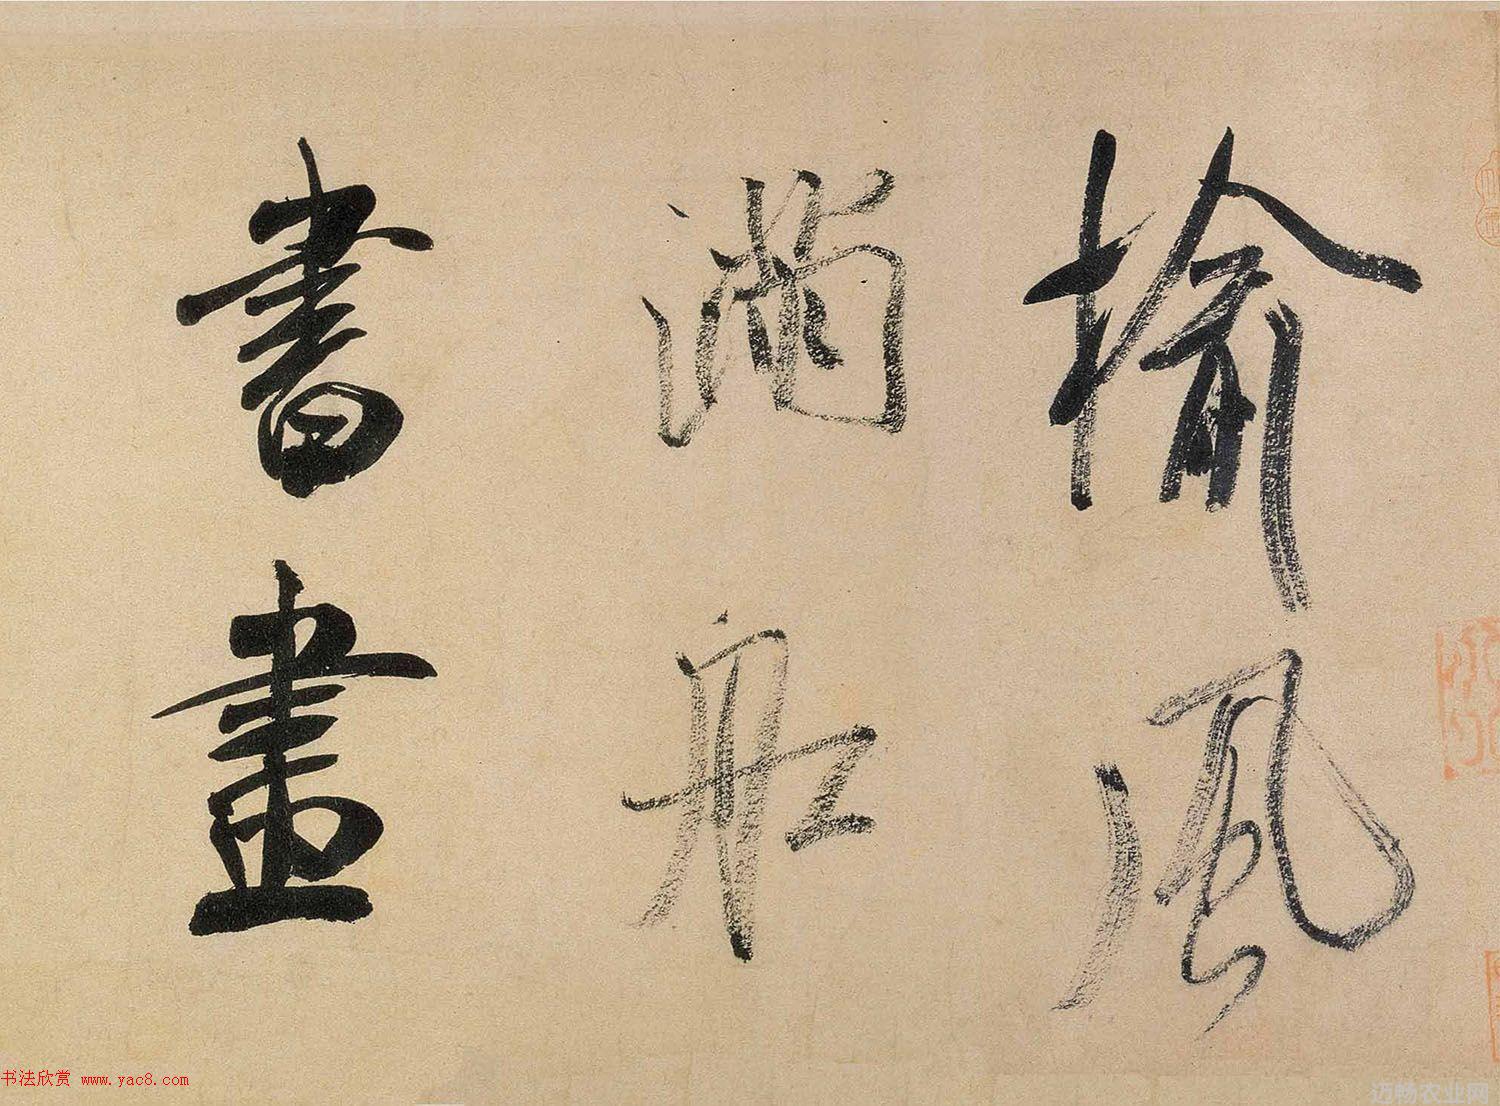 榆風
滿船
書畫
书法欣赏 www.yac8.com
迈畅农业网